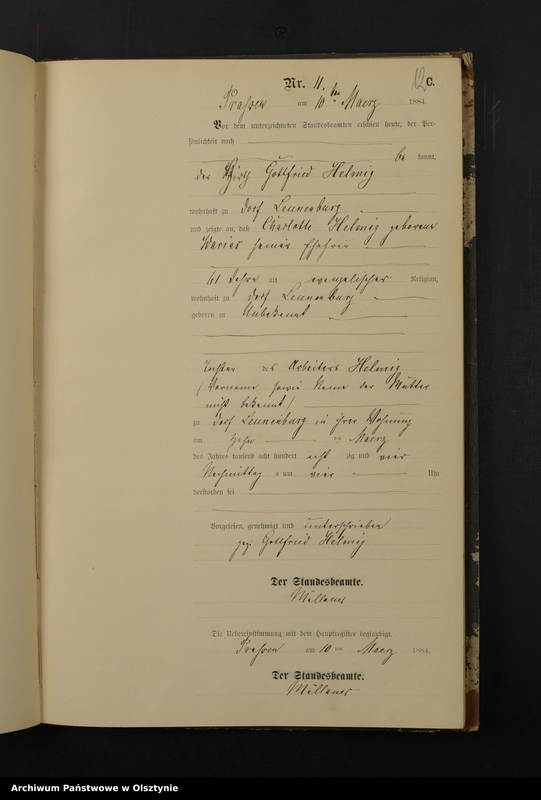 Nr. 11. C.
Praßen am 10ten Maerz 1884.
Vor dem unterzeichneten Standesbeamten erschien heute, der Per-
sönlichkeit nach
be kannt,
der Wirth Gottfried Helmig
wohnhaft zu Dorf Leunenburg
und zeigte an, daß Charlotte Helmig geborene
seine Ehefrau
61 Jahre alt evangelischer Religion,
wohnhaft zu Dorf Leunenburg
geboren zu Unbekannt
Tochter des Arbeiters Helmig
(Vorname sowie Name der Mutter
nicht bekannt)
zu Dorf Leunenburg in ihrer Wohnung
am zehn ten Maerz
des Jahres tausend acht hundert acht zig und vier
Nachmittag s um vier Uhr
verstorben sei
Vorgelesen, genehmigt und unterschrieben
gez. Gottfried Helmig
Der Standesbeamte.
Die Uebereinstimmung mit dem Hauptregister beglaubigt
Praßen am 10 ten Maerz 1884.
Der Standesbeamte.
Archiwum Państwowe w Olsztynie